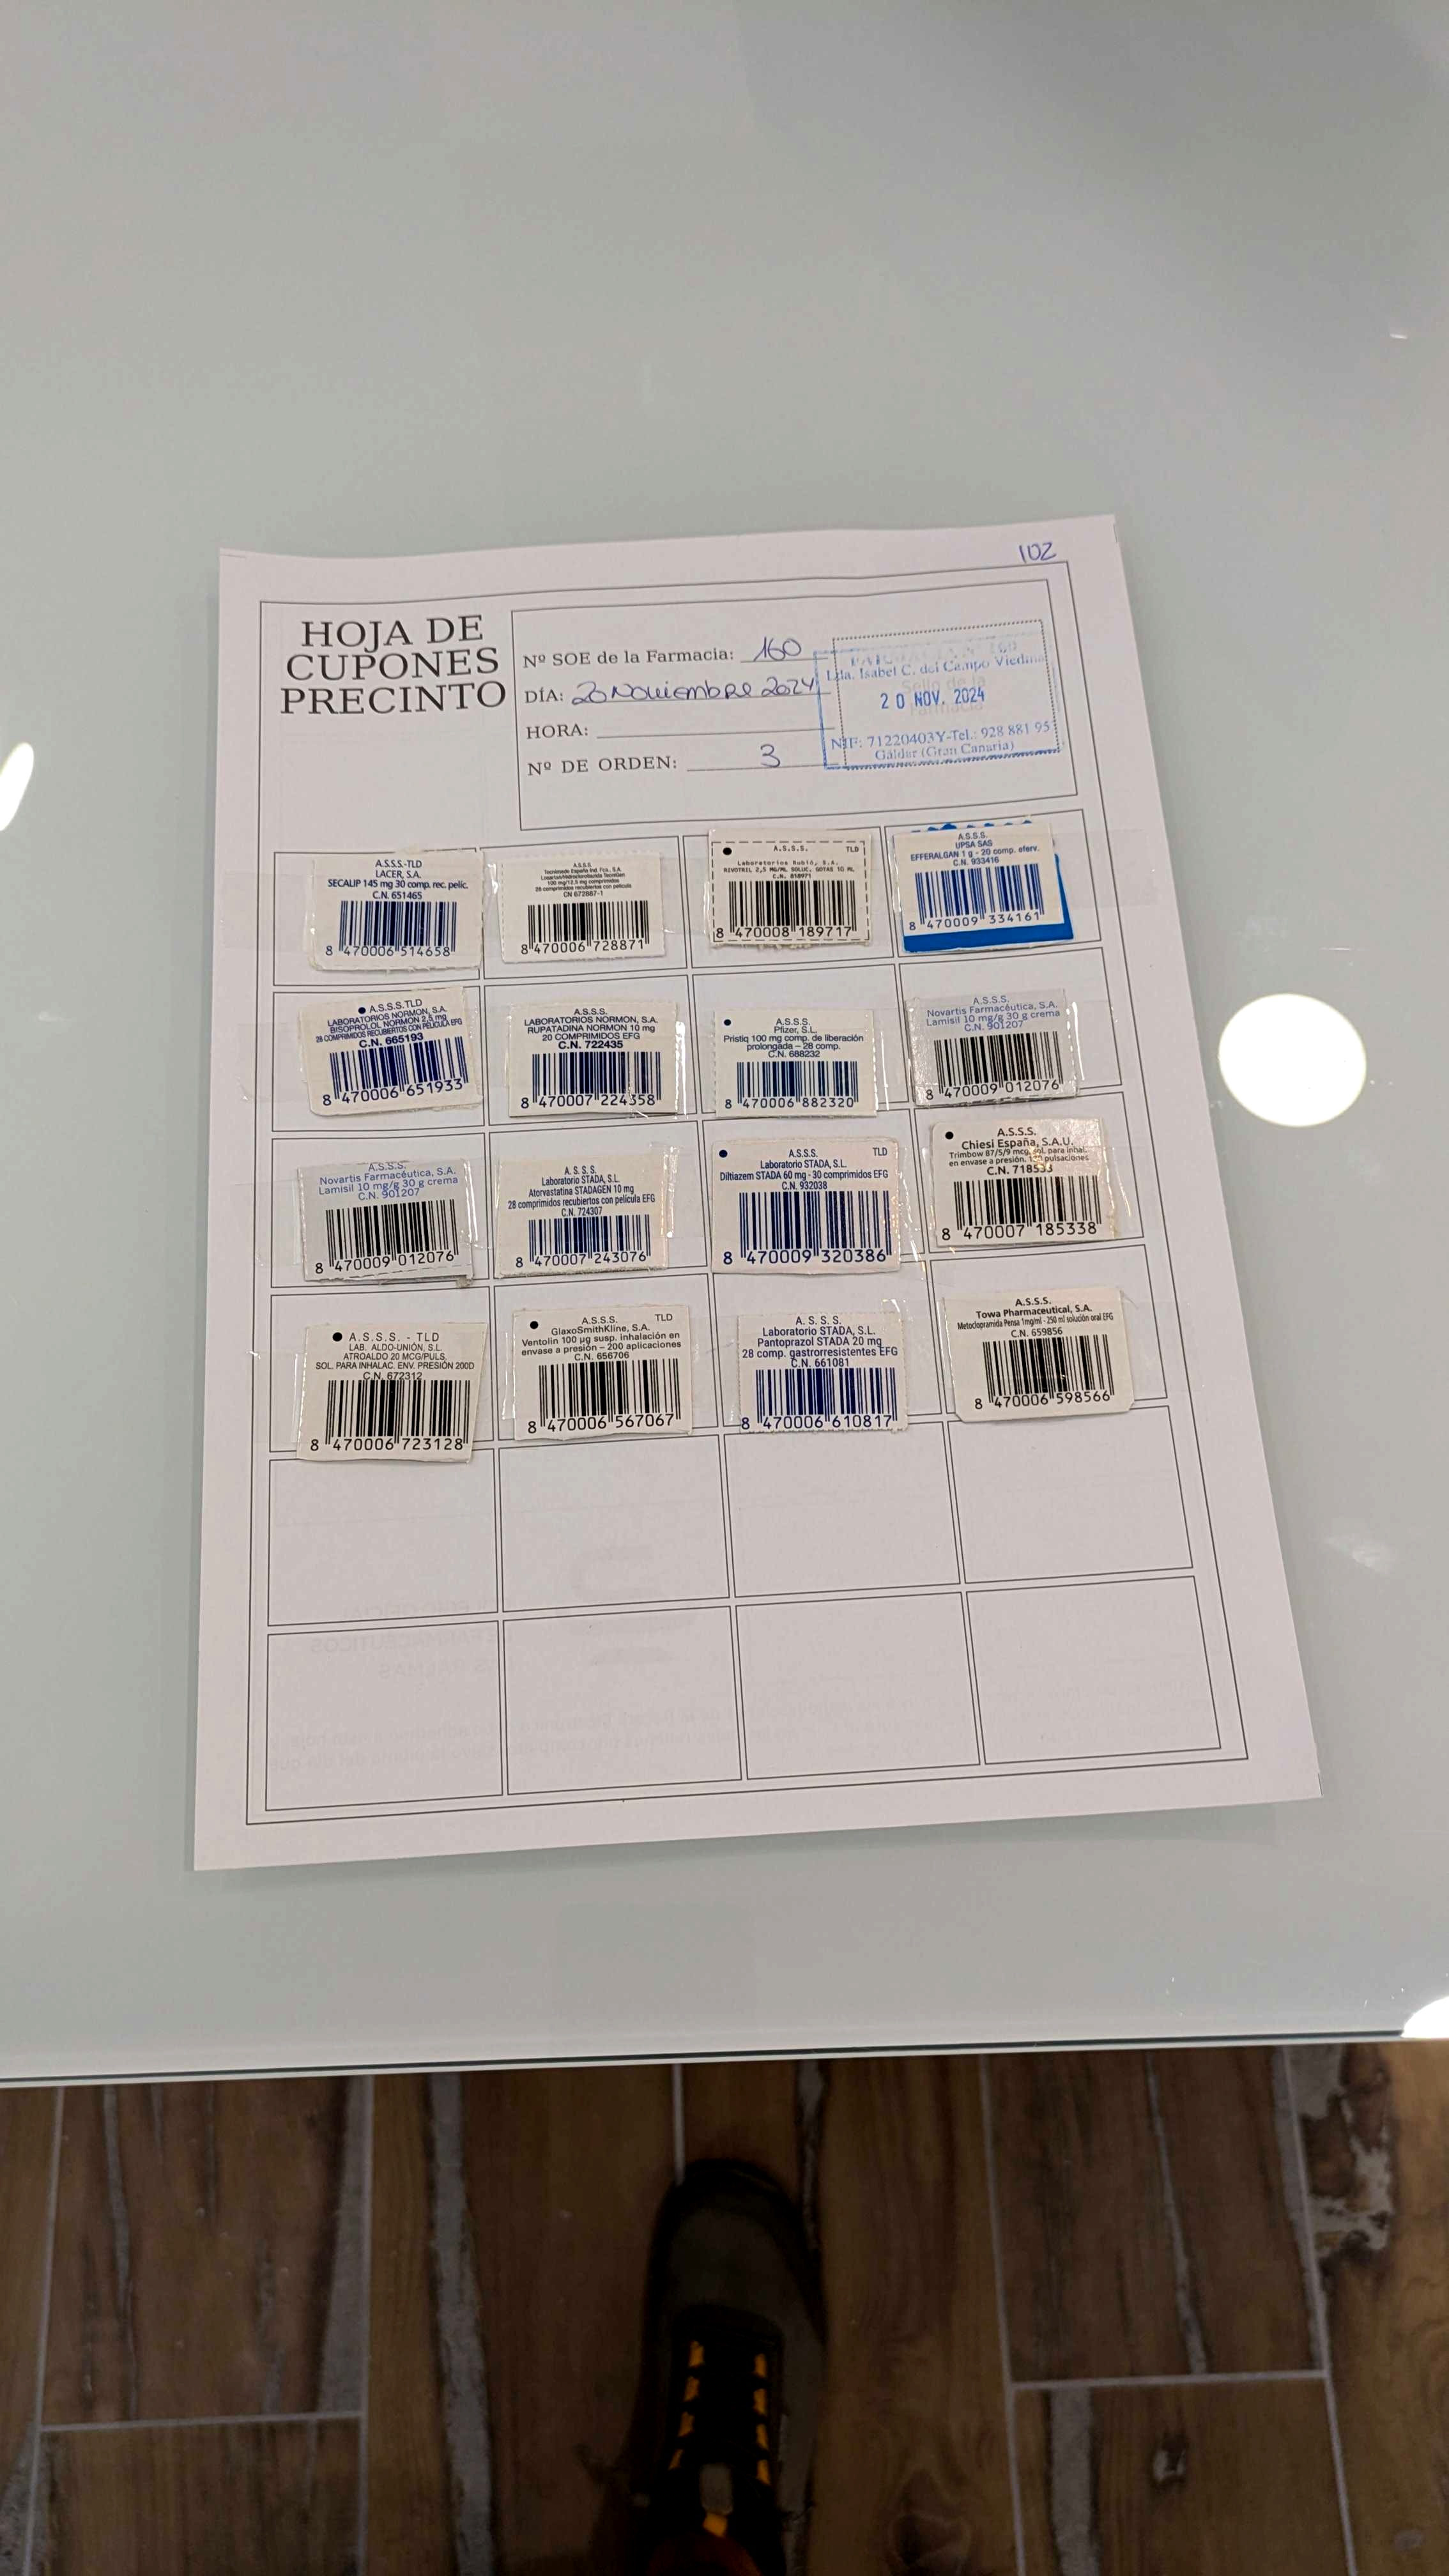 102
HOJA DE
CUPONES
PRECINTO
Nº SOE de la Farmacia: 160
DÍA: 20 Noviembre 2024
HORA:
Nº DE ORDEN: 3
Lda. Isabel C. del Campo Viedma
Sello de la
20 NOV. 2024
Farmacia
NIF: 71220403Y-Tel.: 928 881 95
Gáldar (Gran Canaria)
A.S.S.S.-TLD
LACER, S.A.
SECALIP 145 mg 30 comp. rec. pelíc.
C.N. 651465
8 470006 514658
A.S.S.S.
Tecnimede España Ind. Fca., S.A.
Losartan/Hidroclorotiazida TecniGen
100 mg/12,5 mg comprimidos
28 comprimidos recubiertos con película
CN 672887-1
8 470006 728871
A.S.S.S. TLD
Laboratorios Rubió, S.A.
RIVOTRIL 2,5 MG/ML SOLUC. GOTAS 10 ML
C.N. 818971
8 470008 189717
A.S.S.S.
UPSA SAS
EFFERALGAN 1 g - 20 comp. eferv.
C.N. 933416
8 470009 334161
A.S.S.S.TLD
LABORATORIOS NORMON, S.A.
BISOPROLOL NORMON 2,5 mg
28 COMPRIMIDOS RECUBIERTOS CON PELICULA EFG
C.N. 665193
8 470006 651933
A.S.S.S.
LABORATORIOS NORMON, S.A.
RUPATADINA NORMON 10 mg
20 COMPRIMIDOS EFG
C.N. 722435
8 470007 224358
A.S.S.S.
Pfizer, S.L.
Pristiq 100 mg comp. de liberación
prolongada – 28 comp.
C.N. 688232
8 470006 882320
A.S.S.S.
Novartis Farmacéutica, S.A.
Lamisil 10 mg/g 30 g crema
C.N. 901207
8 470009 012076
A.S.S.S.
Novartis Farmacéutica, S.A.
Lamisil 10 mg/g 30 g crema
C.N. 901207
8 470009 012076
A. S. S. S.
Laboratorio STADA, S.L.
Atorvastatina STADAGEN 10 mg
28 comprimidos recubiertos con película EFG
C.N. 724307
8 470007 243076
A.S.S.S. TLD
Laboratorio STADA, S.L.
Diltiazem STADA 60 mg - 30 comprimidos EFG
C.N. 932038
8 470009 320386
A.S.S.S.
Chiesi España, S.A.U.
Trimbow 87/5/9 mcg, sol. para inhal.
en envase a presión. pulsaciones
C.N. 718533
8 470007 185338
A.S.S.S. - TLD
LAB. ALDO-UNIÓN, S.L.
ATROALDO 20 MCG/PULS.
SOL. PARA INHALAC. ENV. PRESIÓN 200D
C.N. 672312
8 470006 723128
A.S.S.S. TLD
GlaxoSmithKline, S.A.
Ventolin 100 µg susp. inhalación en
envase a presión – 200 aplicaciones
C.N. 656706
8 470006 567067
A. S. S. S.
Laboratorio STADA, S.L.
Pantoprazol STADA 20 mg
28 comp. gastrorresistentes EFG
C.N. 661081
8 470006 610817
A.S.S.S.
Towa Pharmaceutical, S.A.
Metoclopramida Pensa 1mg/ml - 250 ml solución oral EFG
C.N. 659856
8 470006 598566